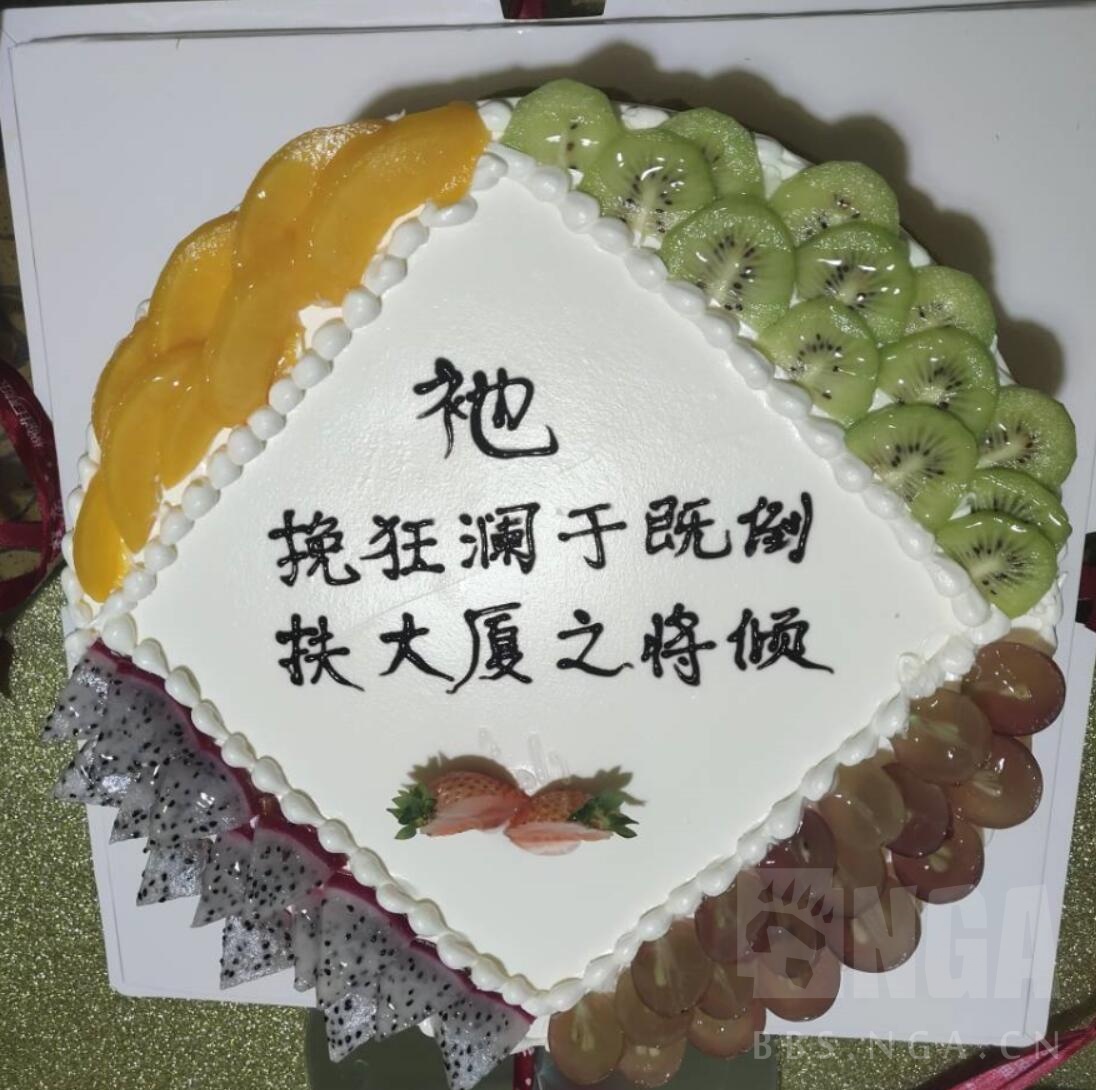 祂
挽狂澜于既倒
扶大厦之将倾
NGA
BBS.NGA.CN